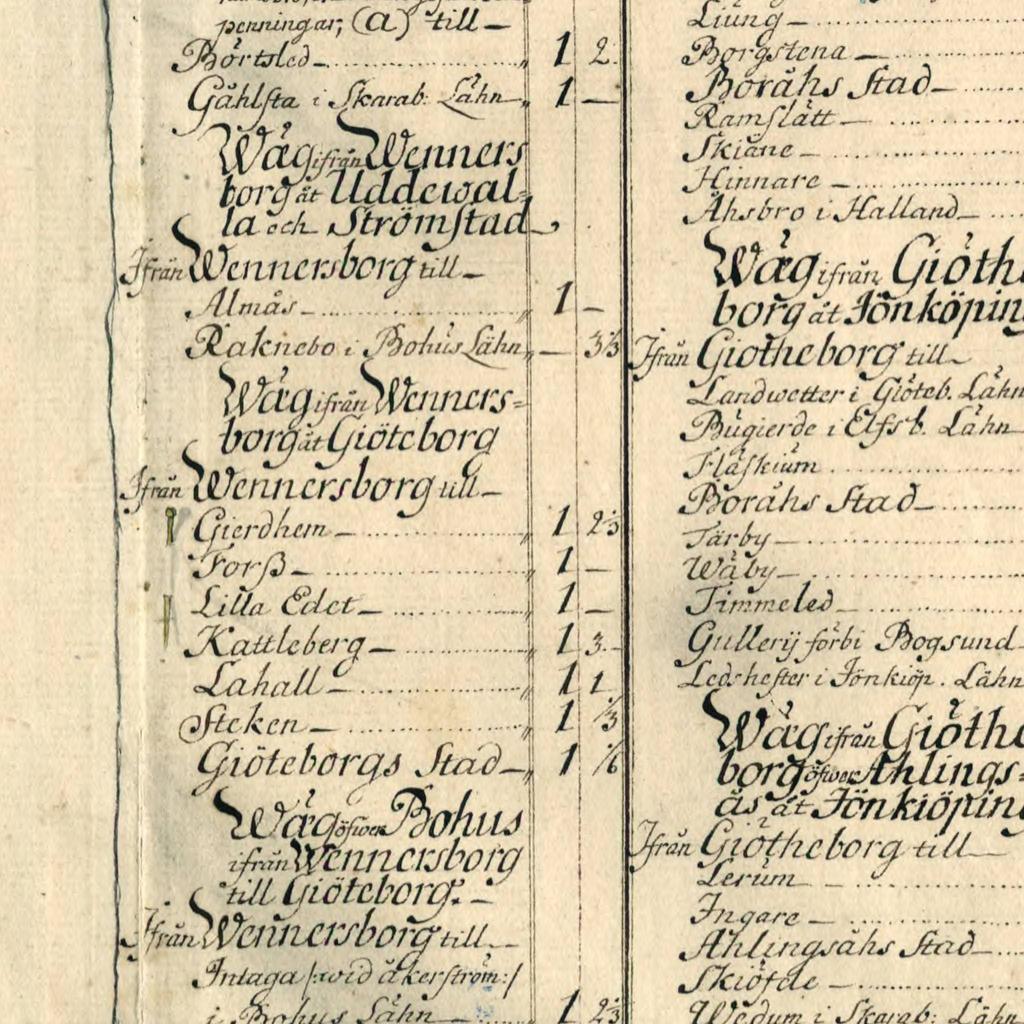 penningar, (a) till —
Börtsled — „ 1 2.
Gåhlsta i Skarab: Lähn „ 1 —
Wäg ifrån Wenners
borg åt Uddewal=
la och Strömstad
Ifrån Wennersborg till —
Almås — „ 1 —
Raknebo i Bohus Lähn „ — 3⅓
Wäg ifrån Wenners=
borg åt Giöteborg
Ifrån Wennersborg till —
Gierdhem — „ 1 2⅓
Forß — „ 1 —
Lilla Edet — „ 1 —
Kattleberg — „ 1 3. —
Lahall — „ 1 1
Steken — „ 1 ⅓
Giöteborgs Stad — „ 1 ⅙
Wäg öfwer Bohus
ifrån Wennersborg
till Giöteborg. —
Ifrån Wennersborg till —
Intaga /:wid åkerström:/
i Bohus Lähn — „ 1 2⅓
Liung —
Borgstena —
Boråhs Stad —
Ramslätt —
Skiäne —
Hinnare —
Åhsbro i Halland —
Wäg ifrån Giöthe
borg åt Jönköping
Ifrån Giotheborg till —
Landwetter i Giöteb. Lähn
Bugierde i Elfsb. Lähn
Fläskium
Boråhs Stad —
Tärby —
Wäby —
Timmeled —
Gullerij förbi Bogsund —
Ledshester i Jönkiöp. Lähn
Wäg ifrån Giöthe
borg öfwer Ahlings=
ås åt Jönkiöping
Ifrån Giötheborg till —
Lerum —
Ingare —
Ahlingsåhs Stad —
Skiöfde —
Wedum i Skarab: Lähn